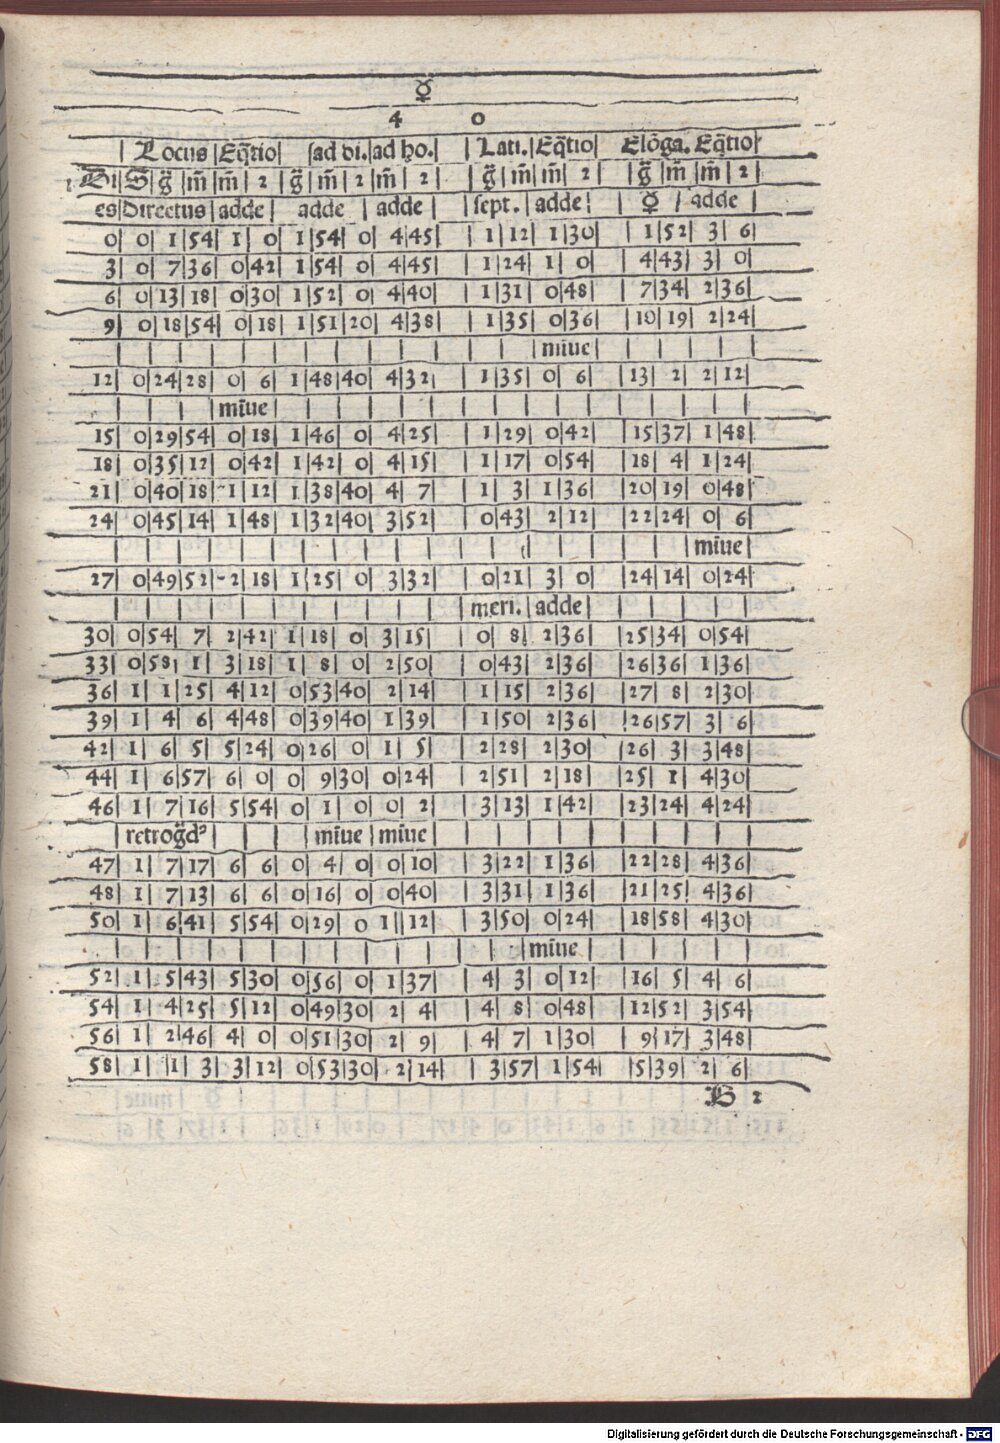 ☿
4 0
| Locus | Eq̃tio | ad di. | ad ho. | Lati. | Eq̃tio | Elōga. Eq̃tio
Di | S̃ | g̃ | m̃ | m̃ | 2 | g̃ | m̃ | 2 | m̃ | 2 | | g̃ | m̃ | m̃ | 2 | | g̃ | m̃ | m̃ | 2
es | directus | adde | adde | adde | | sept. | adde | | ☿ | adde
0 | 0 | 1 | 54 | 1 | 0 | 1 | 54 | 0 | 4 | 45 | | 1 | 12 | 1 | 30 | | 1 | 52 | 3 | 6
3 | 0 | 7 | 36 | 0 | 42 | 1 | 54 | 0 | 4 | 45 | | 1 | 24 | 1 | 0 | | 4 | 43 | 3 | 0
6 | 0 | 13 | 18 | 0 | 30 | 1 | 52 | 0 | 4 | 40 | | 1 | 31 | 0 | 48 | | 7 | 34 | 2 | 36
9 | 0 | 18 | 54 | 0 | 18 | 1 | 51 | 20 | 4 | 38 | | 1 | 35 | 0 | 36 | | 10 | 19 | 2 | 24
miūe
12 | 0 | 24 | 28 | 0 | 6 | 1 | 48 | 40 | 4 | 32 | | 1 | 35 | 0 | 6 | | 13 | 2 | 2 | 12
miūe
15 | 0 | 29 | 54 | 0 | 18 | 1 | 46 | 0 | 4 | 25 | | 1 | 29 | 0 | 42 | | 15 | 37 | 1 | 48
18 | 0 | 35 | 12 | 0 | 42 | 1 | 42 | 0 | 4 | 15 | | 1 | 17 | 0 | 54 | | 18 | 4 | 1 | 24
21 | 0 | 40 | 18 | 1 | 12 | 1 | 38 | 40 | 4 | 7 | | 1 | 3 | 1 | 36 | | 20 | 19 | 0 | 48
24 | 0 | 45 | 14 | 1 | 48 | 1 | 32 | 40 | 3 | 52 | | 0 | 43 | 2 | 12 | | 22 | 24 | 0 | 6
miūe
27 | 0 | 49 | 52 | 2 | 18 | 1 | 25 | 0 | 3 | 32 | | 0 | 21 | 3 | 0 | | 24 | 14 | 0 | 24
meri. | adde
30 | 0 | 54 | 7 | 2 | 42 | 1 | 18 | 0 | 3 | 15 | | 0 | 8 | 2 | 36 | | 25 | 34 | 0 | 54
33 | 0 | 58 | 1 | 3 | 18 | 1 | 8 | 0 | 2 | 50 | | 0 | 43 | 2 | 36 | | 26 | 36 | 1 | 36
36 | 1 | 1 | 25 | 4 | 12 | 0 | 53 | 40 | 2 | 14 | | 1 | 15 | 2 | 36 | | 27 | 8 | 2 | 30
39 | 1 | 4 | 6 | 4 | 48 | 0 | 39 | 40 | 1 | 39 | | 1 | 50 | 2 | 36 | | 26 | 57 | 3 | 6
42 | 1 | 6 | 5 | 5 | 24 | 0 | 26 | 0 | 1 | 5 | | 2 | 28 | 2 | 30 | | 26 | 3 | 3 | 48
44 | 1 | 6 | 57 | 6 | 0 | 0 | 9 | 30 | 0 | 24 | | 2 | 51 | 2 | 18 | | 25 | 1 | 4 | 30
46 | 1 | 7 | 16 | 5 | 54 | 0 | 1 | 0 | 0 | 2 | | 3 | 13 | 1 | 42 | | 23 | 24 | 4 | 24
retrog̃dꝰ | miūe | miūe
47 | 1 | 7 | 17 | 6 | 6 | 0 | 4 | 0 | 0 | 10 | | 3 | 22 | 1 | 36 | | 22 | 28 | 4 | 36
48 | 1 | 7 | 13 | 6 | 6 | 0 | 16 | 0 | 0 | 40 | | 3 | 31 | 1 | 36 | | 21 | 25 | 4 | 36
50 | 1 | 6 | 41 | 5 | 54 | 0 | 29 | 0 | 1 | 12 | | 3 | 50 | 0 | 24 | | 18 | 58 | 4 | 30
miūe
52 | 1 | 5 | 43 | 5 | 30 | 0 | 56 | 0 | 1 | 37 | | 4 | 3 | 0 | 12 | | 16 | 5 | 4 | 6
54 | 1 | 4 | 25 | 5 | 12 | 0 | 49 | 30 | 2 | 4 | | 4 | 8 | 0 | 48 | | 12 | 52 | 3 | 54
56 | 1 | 2 | 46 | 4 | 0 | 0 | 51 | 30 | 2 | 9 | | 4 | 7 | 1 | 30 | | 9 | 17 | 3 | 48
58 | 1 | 1 | 3 | 3 | 12 | 0 | 53 | 30 | 2 | 14 | | 3 | 57 | 1 | 54 | | 5 | 39 | 2 | 6
B 2
Digitalisierung gefördert durch die Deutsche Forschungsgemeinschaft - DFG